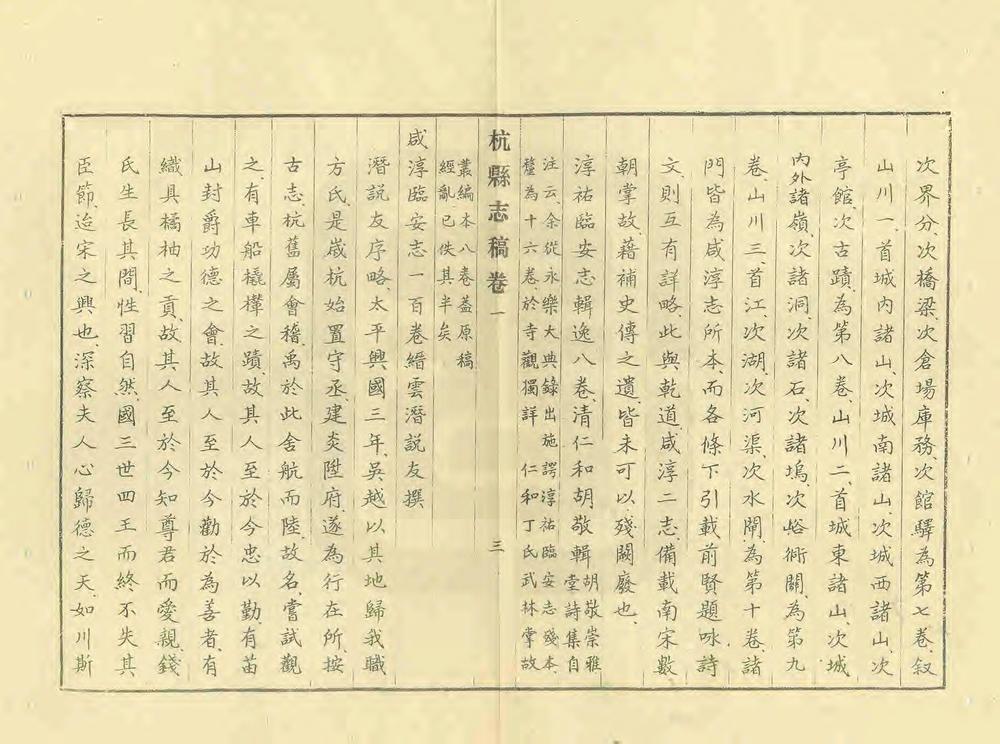 次界分、次橋梁、次倉場庫務、次館驛、為第七卷、敍
山川一、首城內諸山、次城南諸山、次城西諸山、次
亭館、次古蹟、為第八卷、山川二、首城東諸山、次城
內外諸嶺、次諸洞、次諸石、次諸塢、次峪衖關、為第九
卷、山川三、首江、次湖、次河渠、次水閘、為第十卷、諸
門皆為咸淳志所本、而各條下引載前賢題咏詩
文、則互有詳略、此與乾道、咸淳二志、備載南宋數
朝掌故、藉補史傳之遺、皆未可以殘闕廢也、
淳祐臨安志輯逸八卷、清仁和胡敬輯 胡敬崇雅堂詩集自
注云、余從永樂大典錄出施諤淳祐臨安志殘本、
釐為十六卷、於寺觀獨詳 仁和丁氏武林掌故
杭縣志稿卷一 三
叢編本八卷蓋原稿
經亂已佚其半矣
咸淳臨安志一百卷縉雲潛説友撰
潛説友序略、太平興國三年、吳越以其地歸我職
方氏、是嵗杭始置守丞、建炎陞府、遂為行在所、按
古志、杭舊屬會稽、禹於此舍航而陸、故名、嘗試觀
之、有車船橇檋之蹟、故其人至於今忠以勤、有苗
山封爵功德之會、故其人至於今勸於為善者、有
織具橘柚之貢、故其人至於今知尊君而愛親、錢
氏生長其間、性習自然、國三世四王而終不失其
臣節、迨宋之興也、深察夫人心歸德之天、如川斯